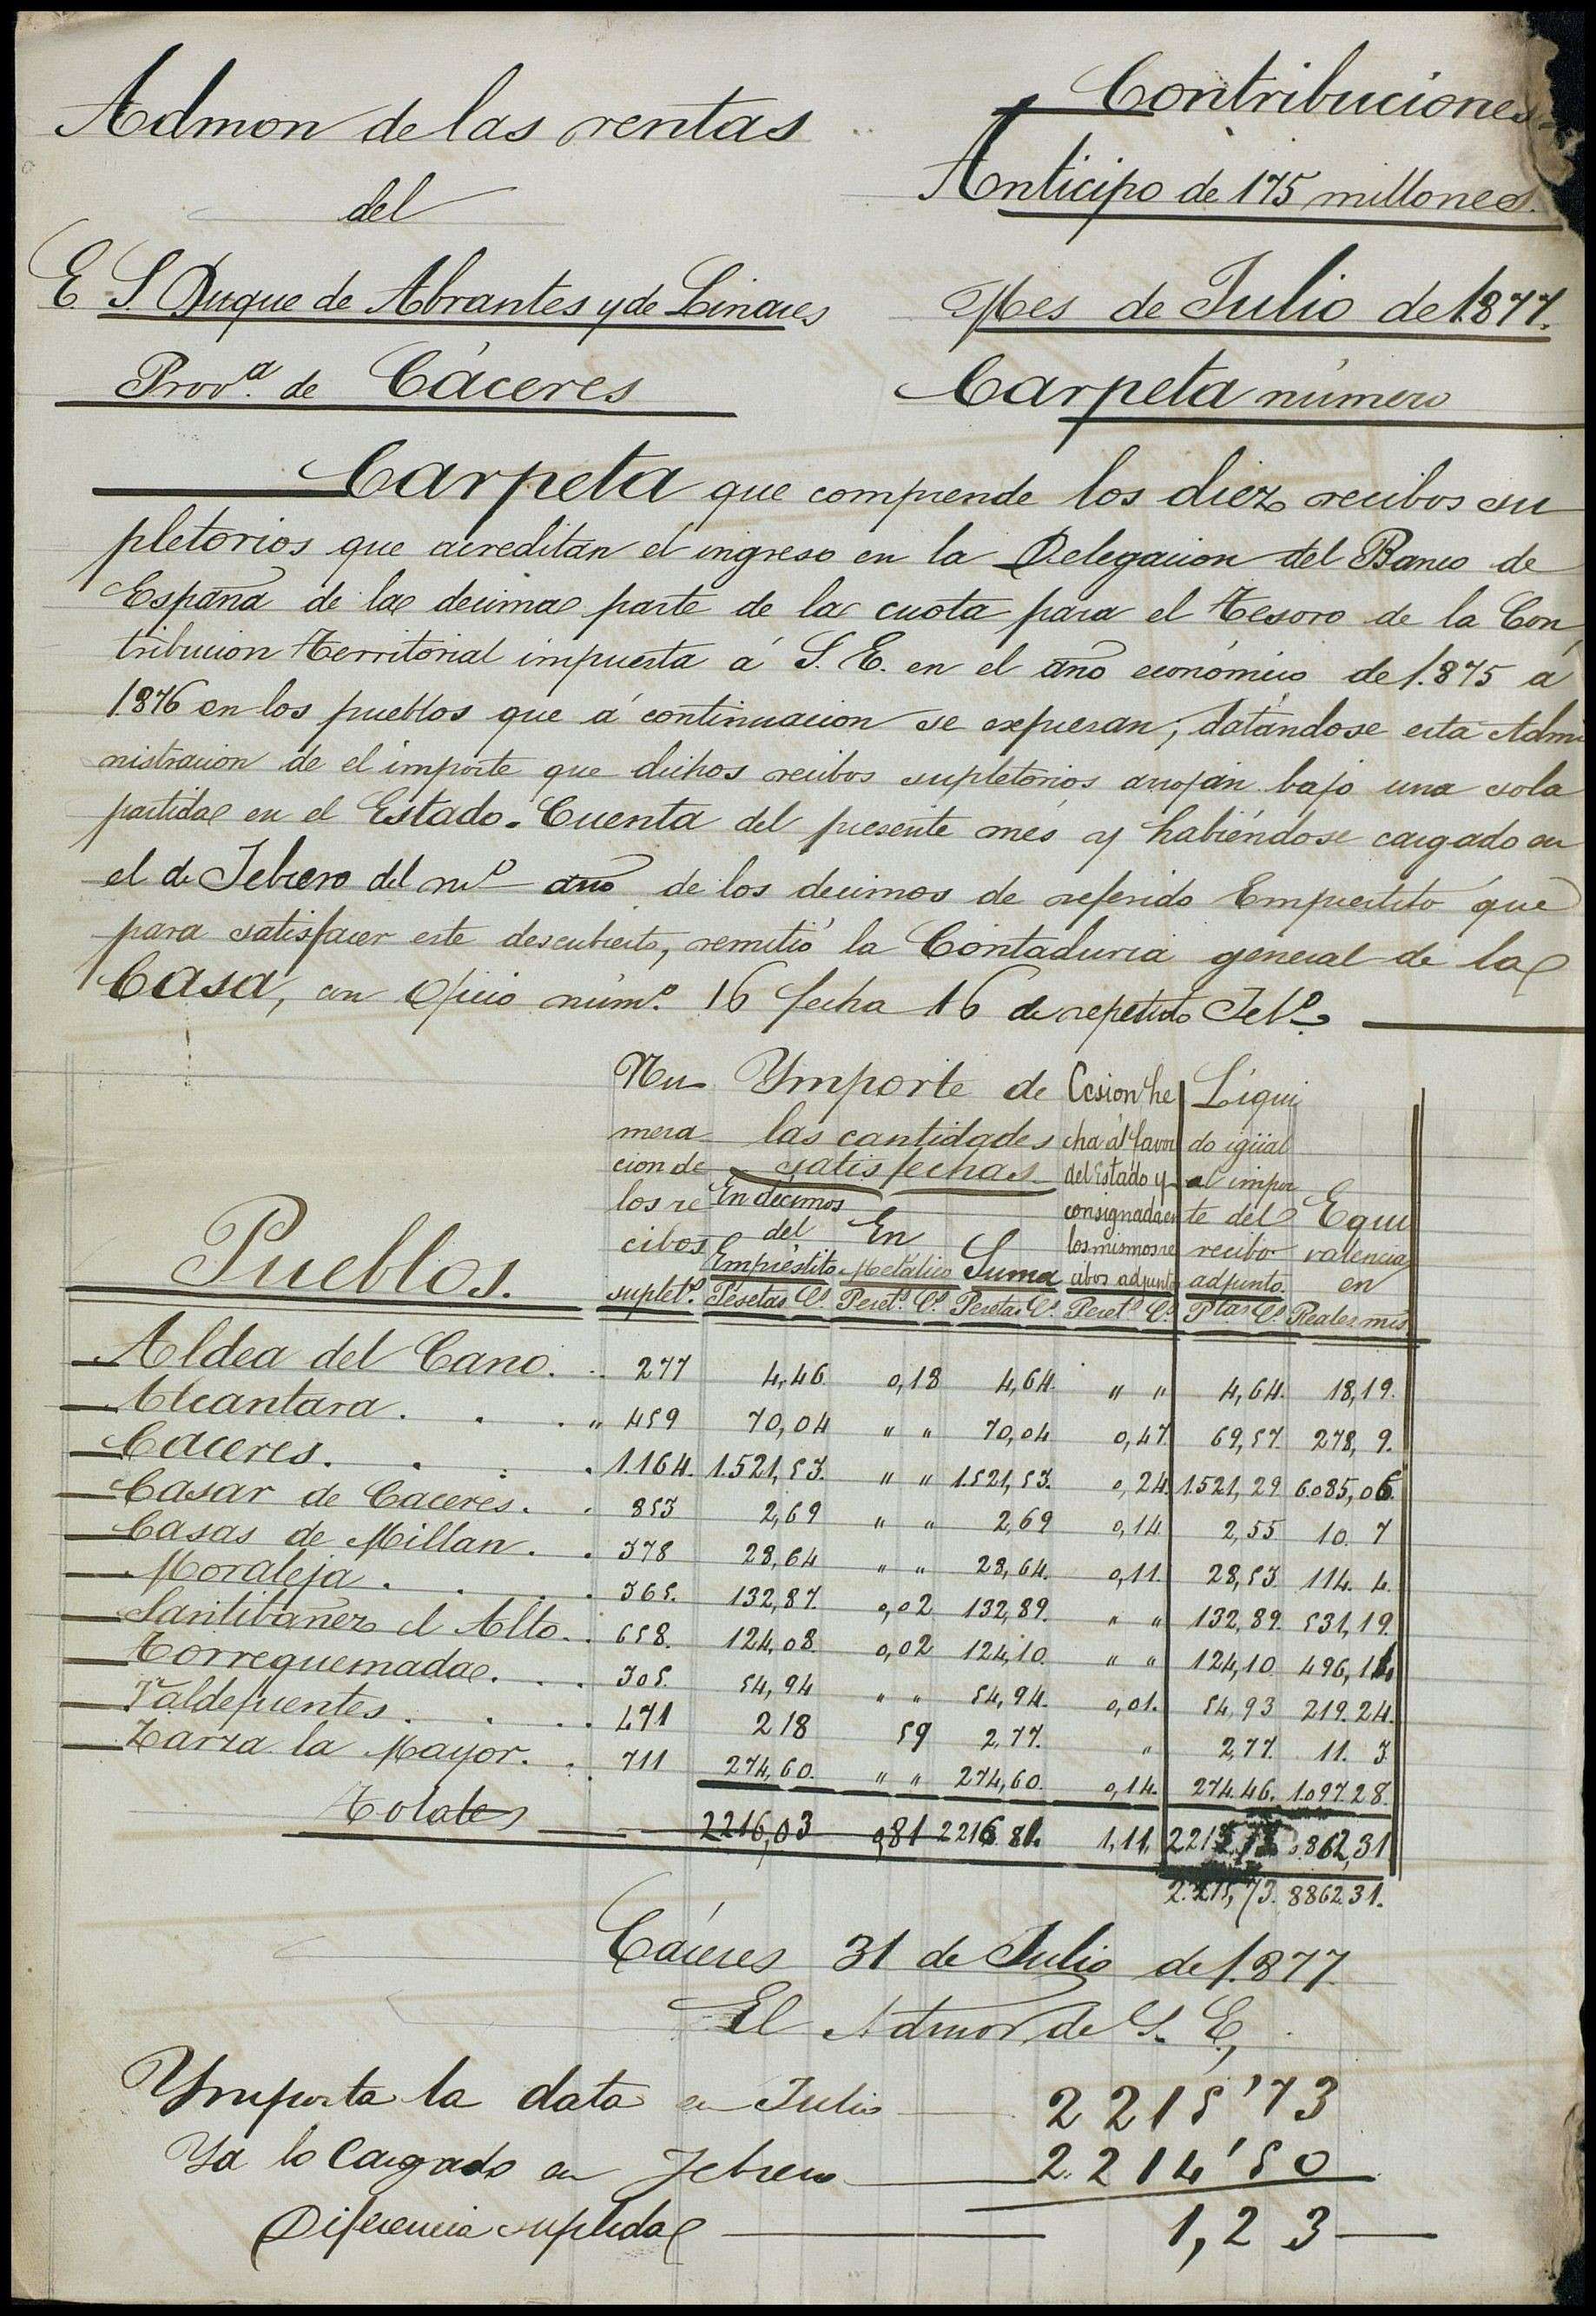 Admon de las rentas
del
E. S. Duque de Abrantes y de Linares
Prov.ª de Cáceres
Contribuciones
Anticipo de 175 millones.
Mes de Julio de 1.877.
Carpeta número
Carpeta que comprende los diez recibos su
pletorios que acreditan el ingreso en la Delegacion del Banco de
España de la decima parte de la cuota para el Tesoro de la Con
tribucion Territorial impuesta á S. E. en el año económico de 1.875 á
1.876 en los pueblos que á continuacion se expresan; datándose esta Admi
nistracion de el importe que dichos recibos supletorios arrojan bajo una sola
partida en el Estado-Cuenta del presente mes y habiéndose cargado en
el de Febrero del mº año de los decimos de referido Empréstito que
para satisfacer este descubierto, remitió la Contaduria general de la
Casa, con oficio núm.º 16 fecha 16 de repetido Feb.º
Pueblos.
Nu
mera
cion de
los re
cibos
suplet.º
Ymporte de
las cantidades
satisfechas
En décimos
del
Empréstito
Pesetas C.s
En
Metálico
Peset.s C.s
Suma
Pesetas C.s
Cesion he
cha ál favor
del Estado y
consignada en
los mismos re
cibos adjuntos
Peset.s C.s
Líqui
do igüal
al impor
te del
recibo
adjunto.
Ptas C.s
Equi
valencia
en
Reales mrs
Aldea del Cano. . 277 4,46. 0,18 4,64. " " 4,64. 18,19.
Alcantara . . . " 459 70,04 " " 70,04 0,47 69,57. 278, 9.
Caceres. . . . 1.164. 1.521,53. " " 1.521,53. 0,24. 1.521,29 6.085,06.
Casar de Caceres. . 853 2,69 " " 2,69 0,14 2,55 10. 7
Casas de Millan . . 378 28,64 " " 28,64. 0,11. 28,53. 114. 4.
Moraleja . . . 365. 132,87. 0,02 132,89. " " 132,89. 531,19.
Santibañez el Alto. . 658. 124,08. 0,02 124,10. " " 124,10. 496,14.
Torrequemada. . . 305. 54,94 " " 54,94. 0,01. 54,93 219.24.
Valdefuentes . . . 471 218 59 2,77. " 2,77. 11. 3
Zarza la Mayor. . 711 274,60. " " 274,60. 0,14. 274.46. 1.097.28.
Totales 2216,03 0,81 2216.81. 1,11, 862,31
2.215,73. 8862.31.
Cáceres 31 de Julio de 1.877
El Admor de S. E,
Ymporta la data en Julio 2215'73
Ya lo Cargado en Febrero 2.214'50
Diferencia suplida 1,23